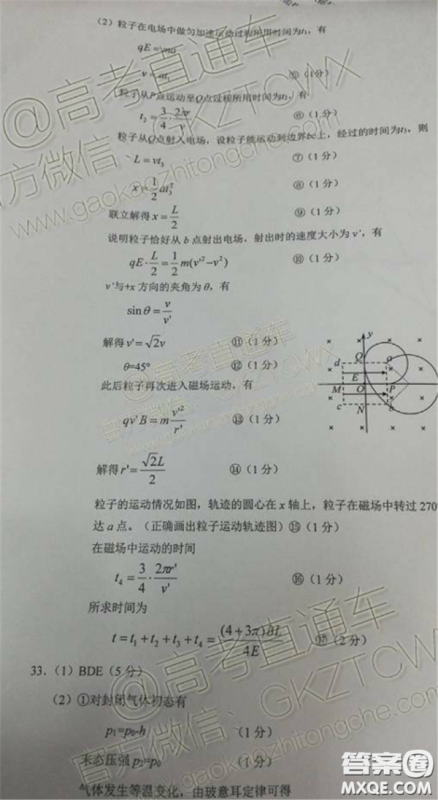 (2)粒子在电场中做匀加速运动过程所用时间为t₁,有
qE=ma
v=at₁ ⑤(1分)
粒子从P点运动至Q点过程所用时间为t₂,有
t₂=3/4·2πr/v ⑥(1分)
粒子从Q点射入电场,设粒子能运动到边界bc上,经过的时间为t₃,则
L=vt₃ ⑦(1分)
x=1/2 at₃² ⑧(1分)
联立解得x=L/2 ⑨(1分)
说明粒子恰好从b点射出电场,射出时的速度大小为v',有
qE·L/2=1/2 m(v'²−v²) ⑩(1分)
v'与+x方向的夹角为θ,有
sinθ=v/v'
解得v'=√2v ⑪(1分)
θ=45° ⑫(1分)
此后粒子再次进入磁场运动,有
qv'B=m v'²/r' ⑬(1分)
解得r'=√2L/2 ⑭(1分)
y
Q
d
a
E
M
O
P
x
c
N
b
粒子的运动情况如图,轨迹的圆心在x轴上,粒子在磁场中转过270
达a点。(正确画出粒子运动轨迹图)⑮(1分)
在磁场中运动的时间
t₄=3/4·2πr'/v' ⑯(1分)
所求时间为
t=t₁+t₂+t₃+t₄=(4+3π)BL/4E ⑰(2分)
33.(1)BDE(5分)
(2)①对封闭气体初态有
p₁=p₀-h (1分)
末态压强p₂=p₀ (1分)
气体发生等温变化,由玻意耳定律可得
@高考直通车
官方微信:GKZTCWX
www.gaokaozhitongche.com
@高考直通车
官方微信:GKZTCWX
www.gaokaozhitongche.com
答案圈
MXQE.COM